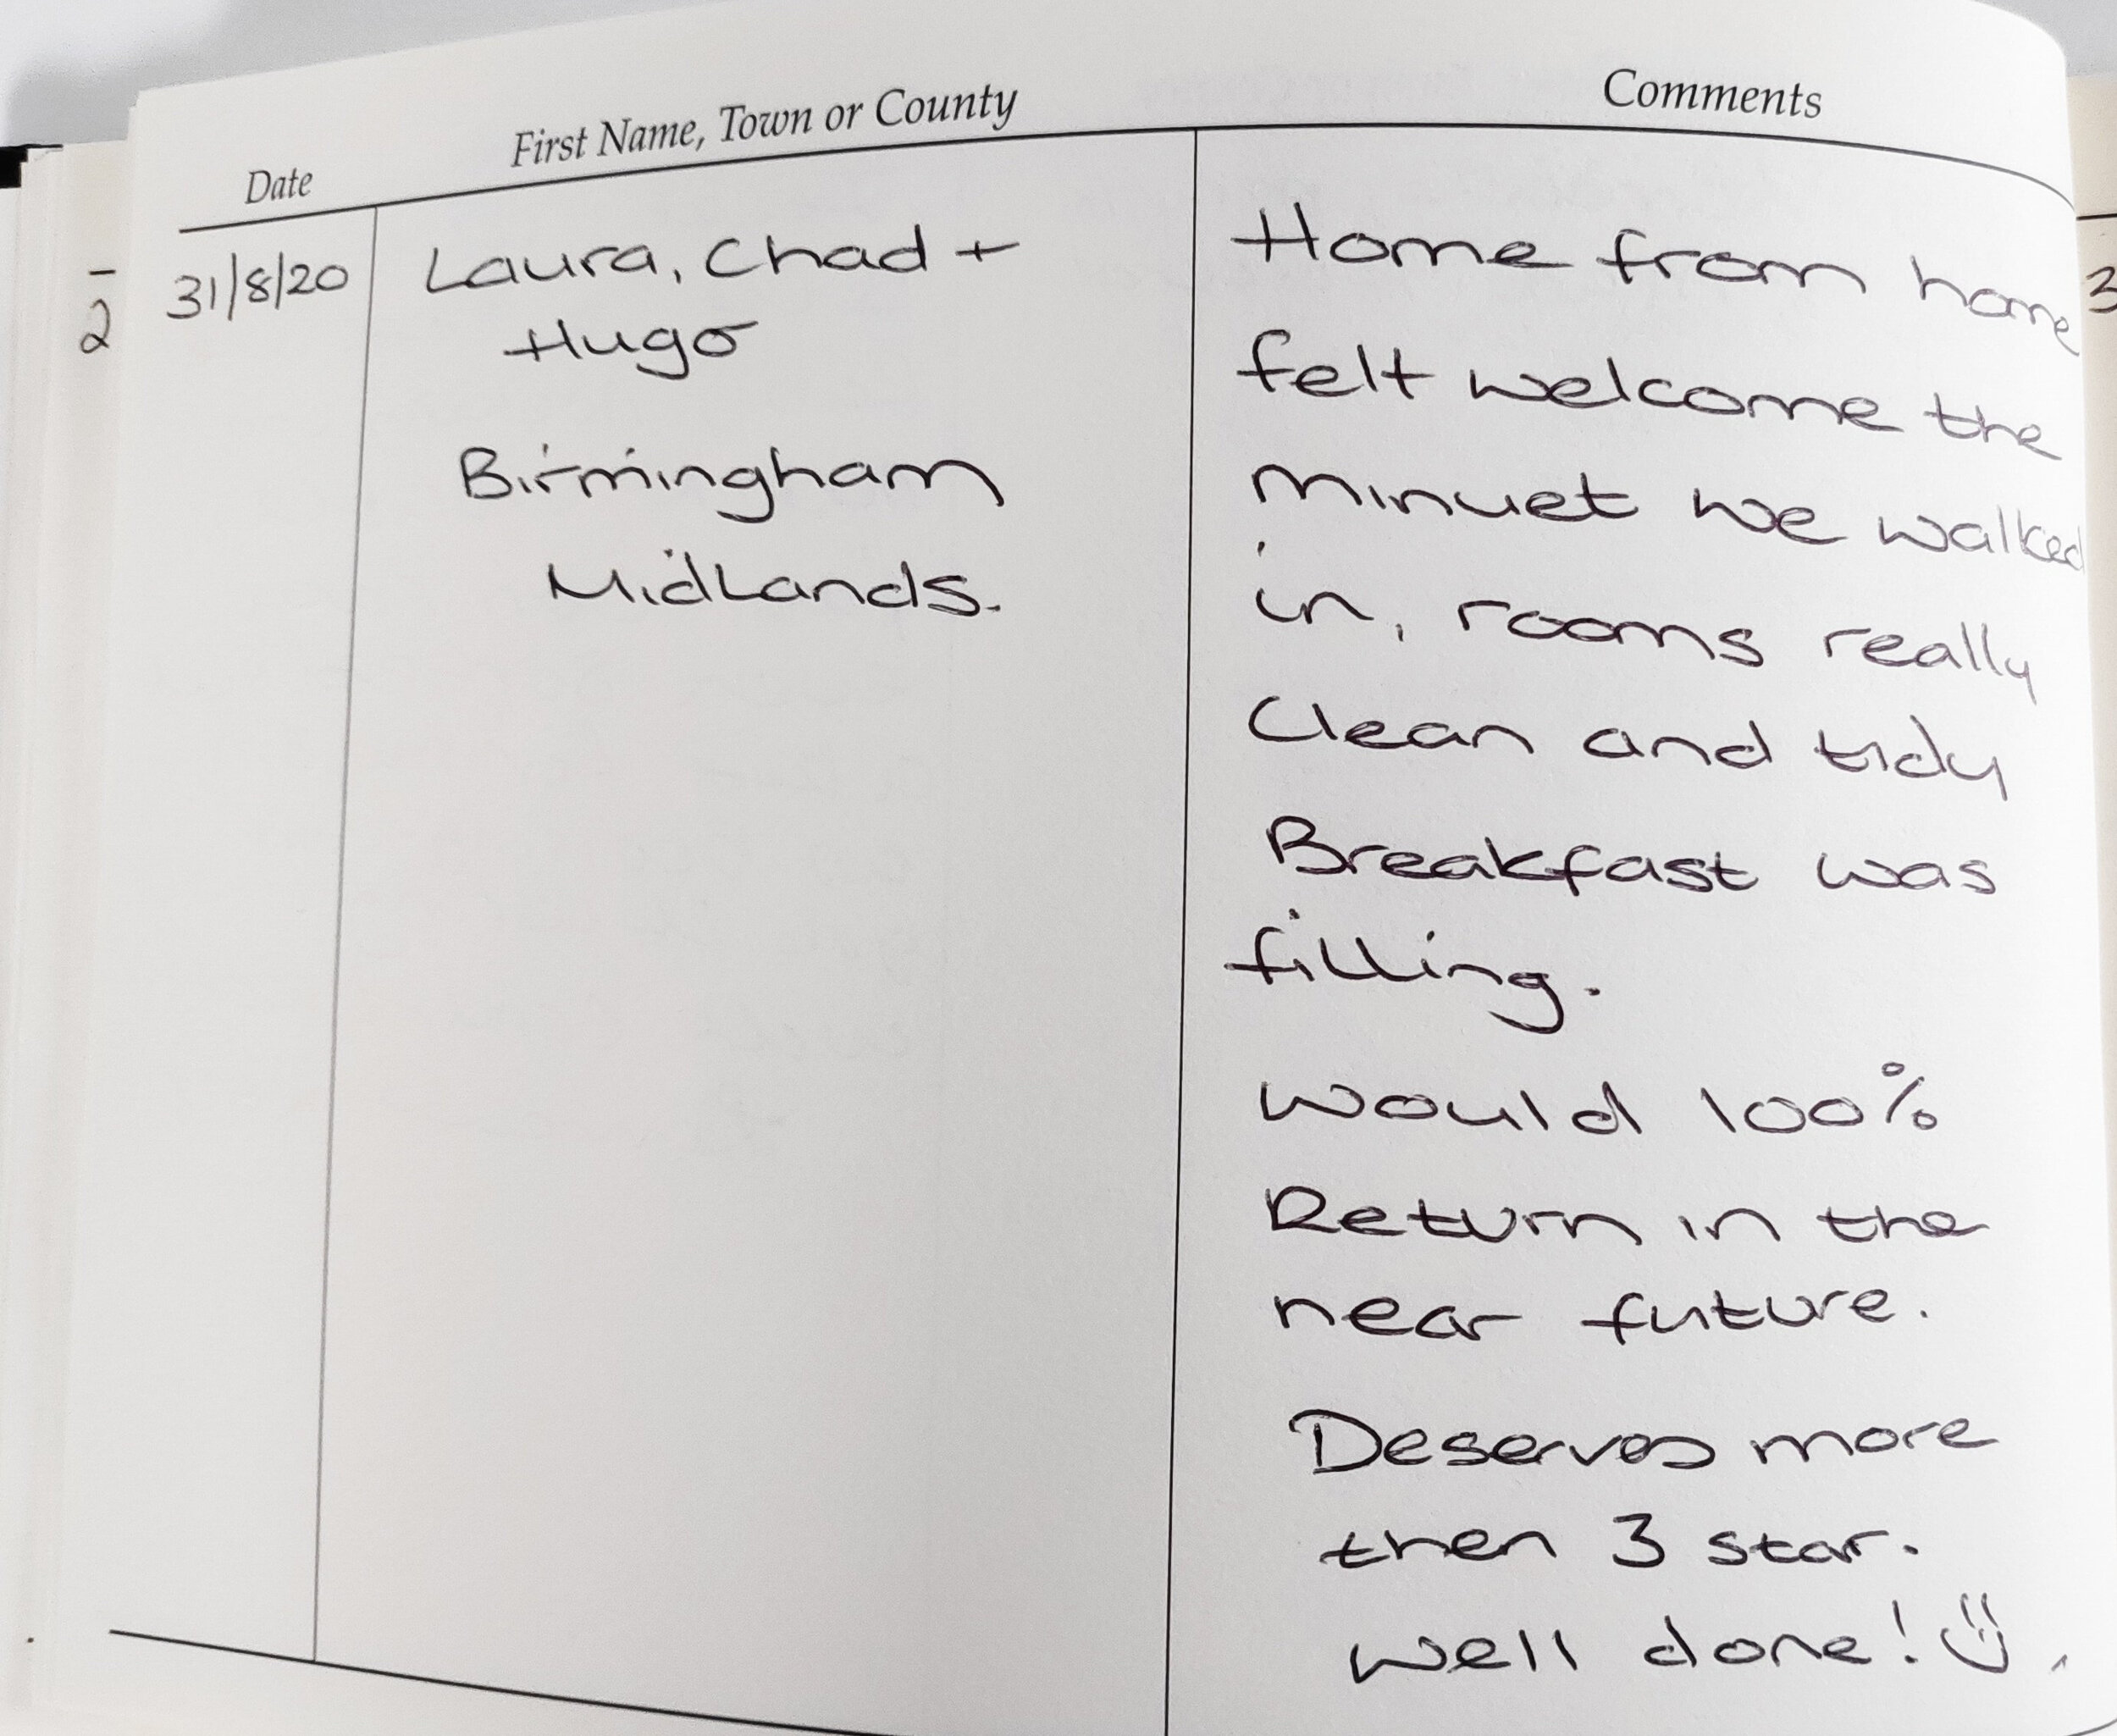 Date First Name, Town or County Comments
31/8/20
Laura, Chad +
Hugo
Birmingham
MidLands.
Home from home
felt welcome the
minuet we walked
in, rooms really
Clean and tidy
Breakfast was
filling.
Would 100%
Return in the
near future.
Deserves more
then 3 star.
well done! 
2
3